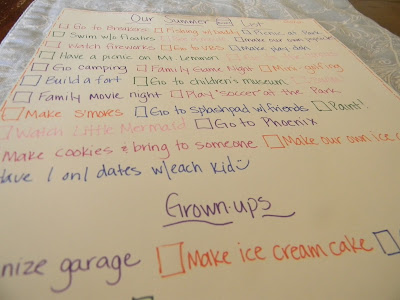 Our Summer List
Go to Brenham Fishing w/Daddy Picnic at Park
Swim w/o floaties Make our own popsicles
Watch fireworks Go to VBS Make play doh
Have a picnic on Mt Lemmon
Go camping Family Game Night Mini golfing
Build a fort Go to children's museum
Family Movie night Play "Soccer" at the Park
Make S'mores Go to Splashpad w/friends Paint!
Watch Little Mermaid Go to Phoenix
Make cookies & bring to someone Make our own ice
Have 1 on 1 dates w/each kid
Grown-ups
nize garage Make ice cream cake